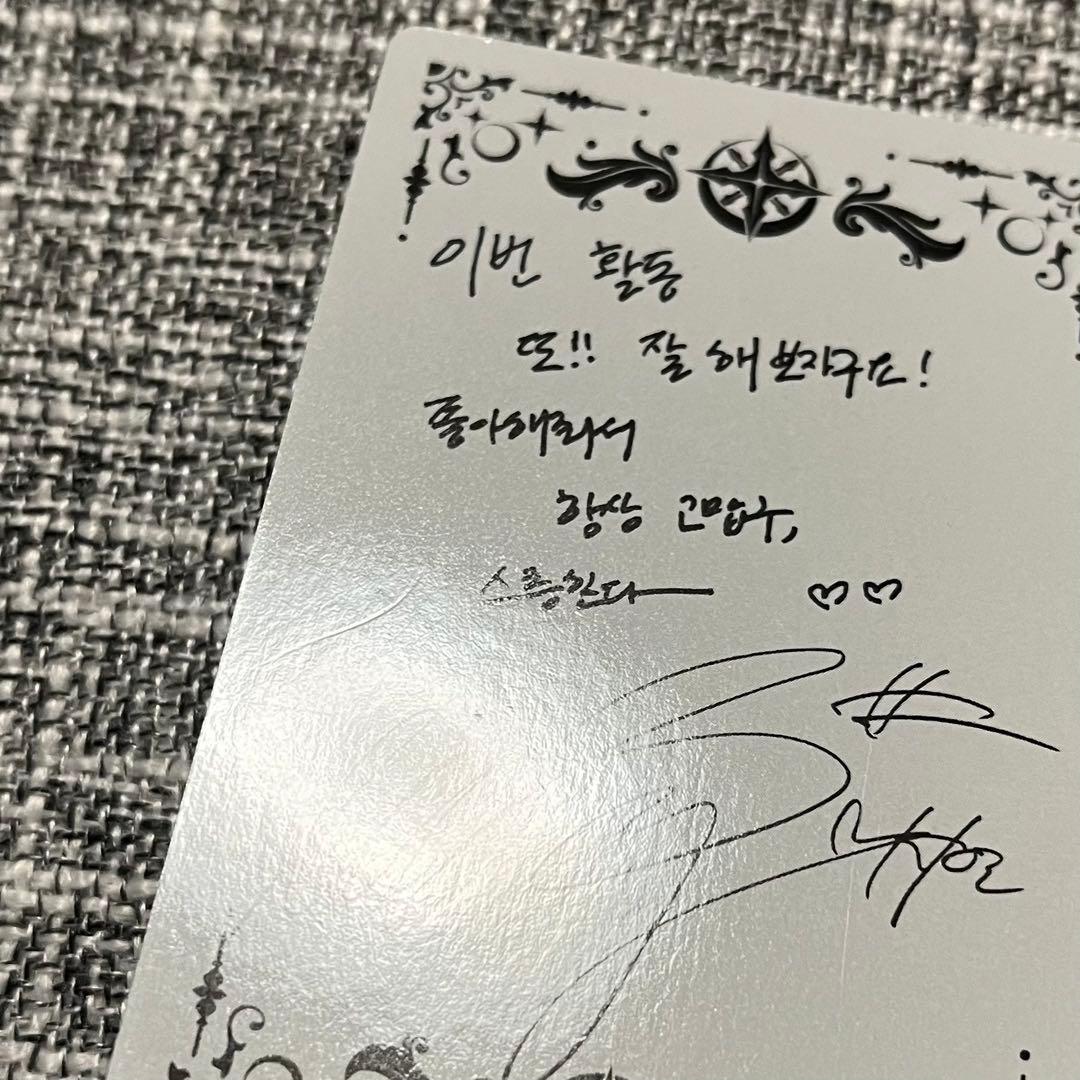 이번 활동
또!! 잘 해 보자구요!
좋아해줘서
항상 고맙구,
사릉한다 ♡♡